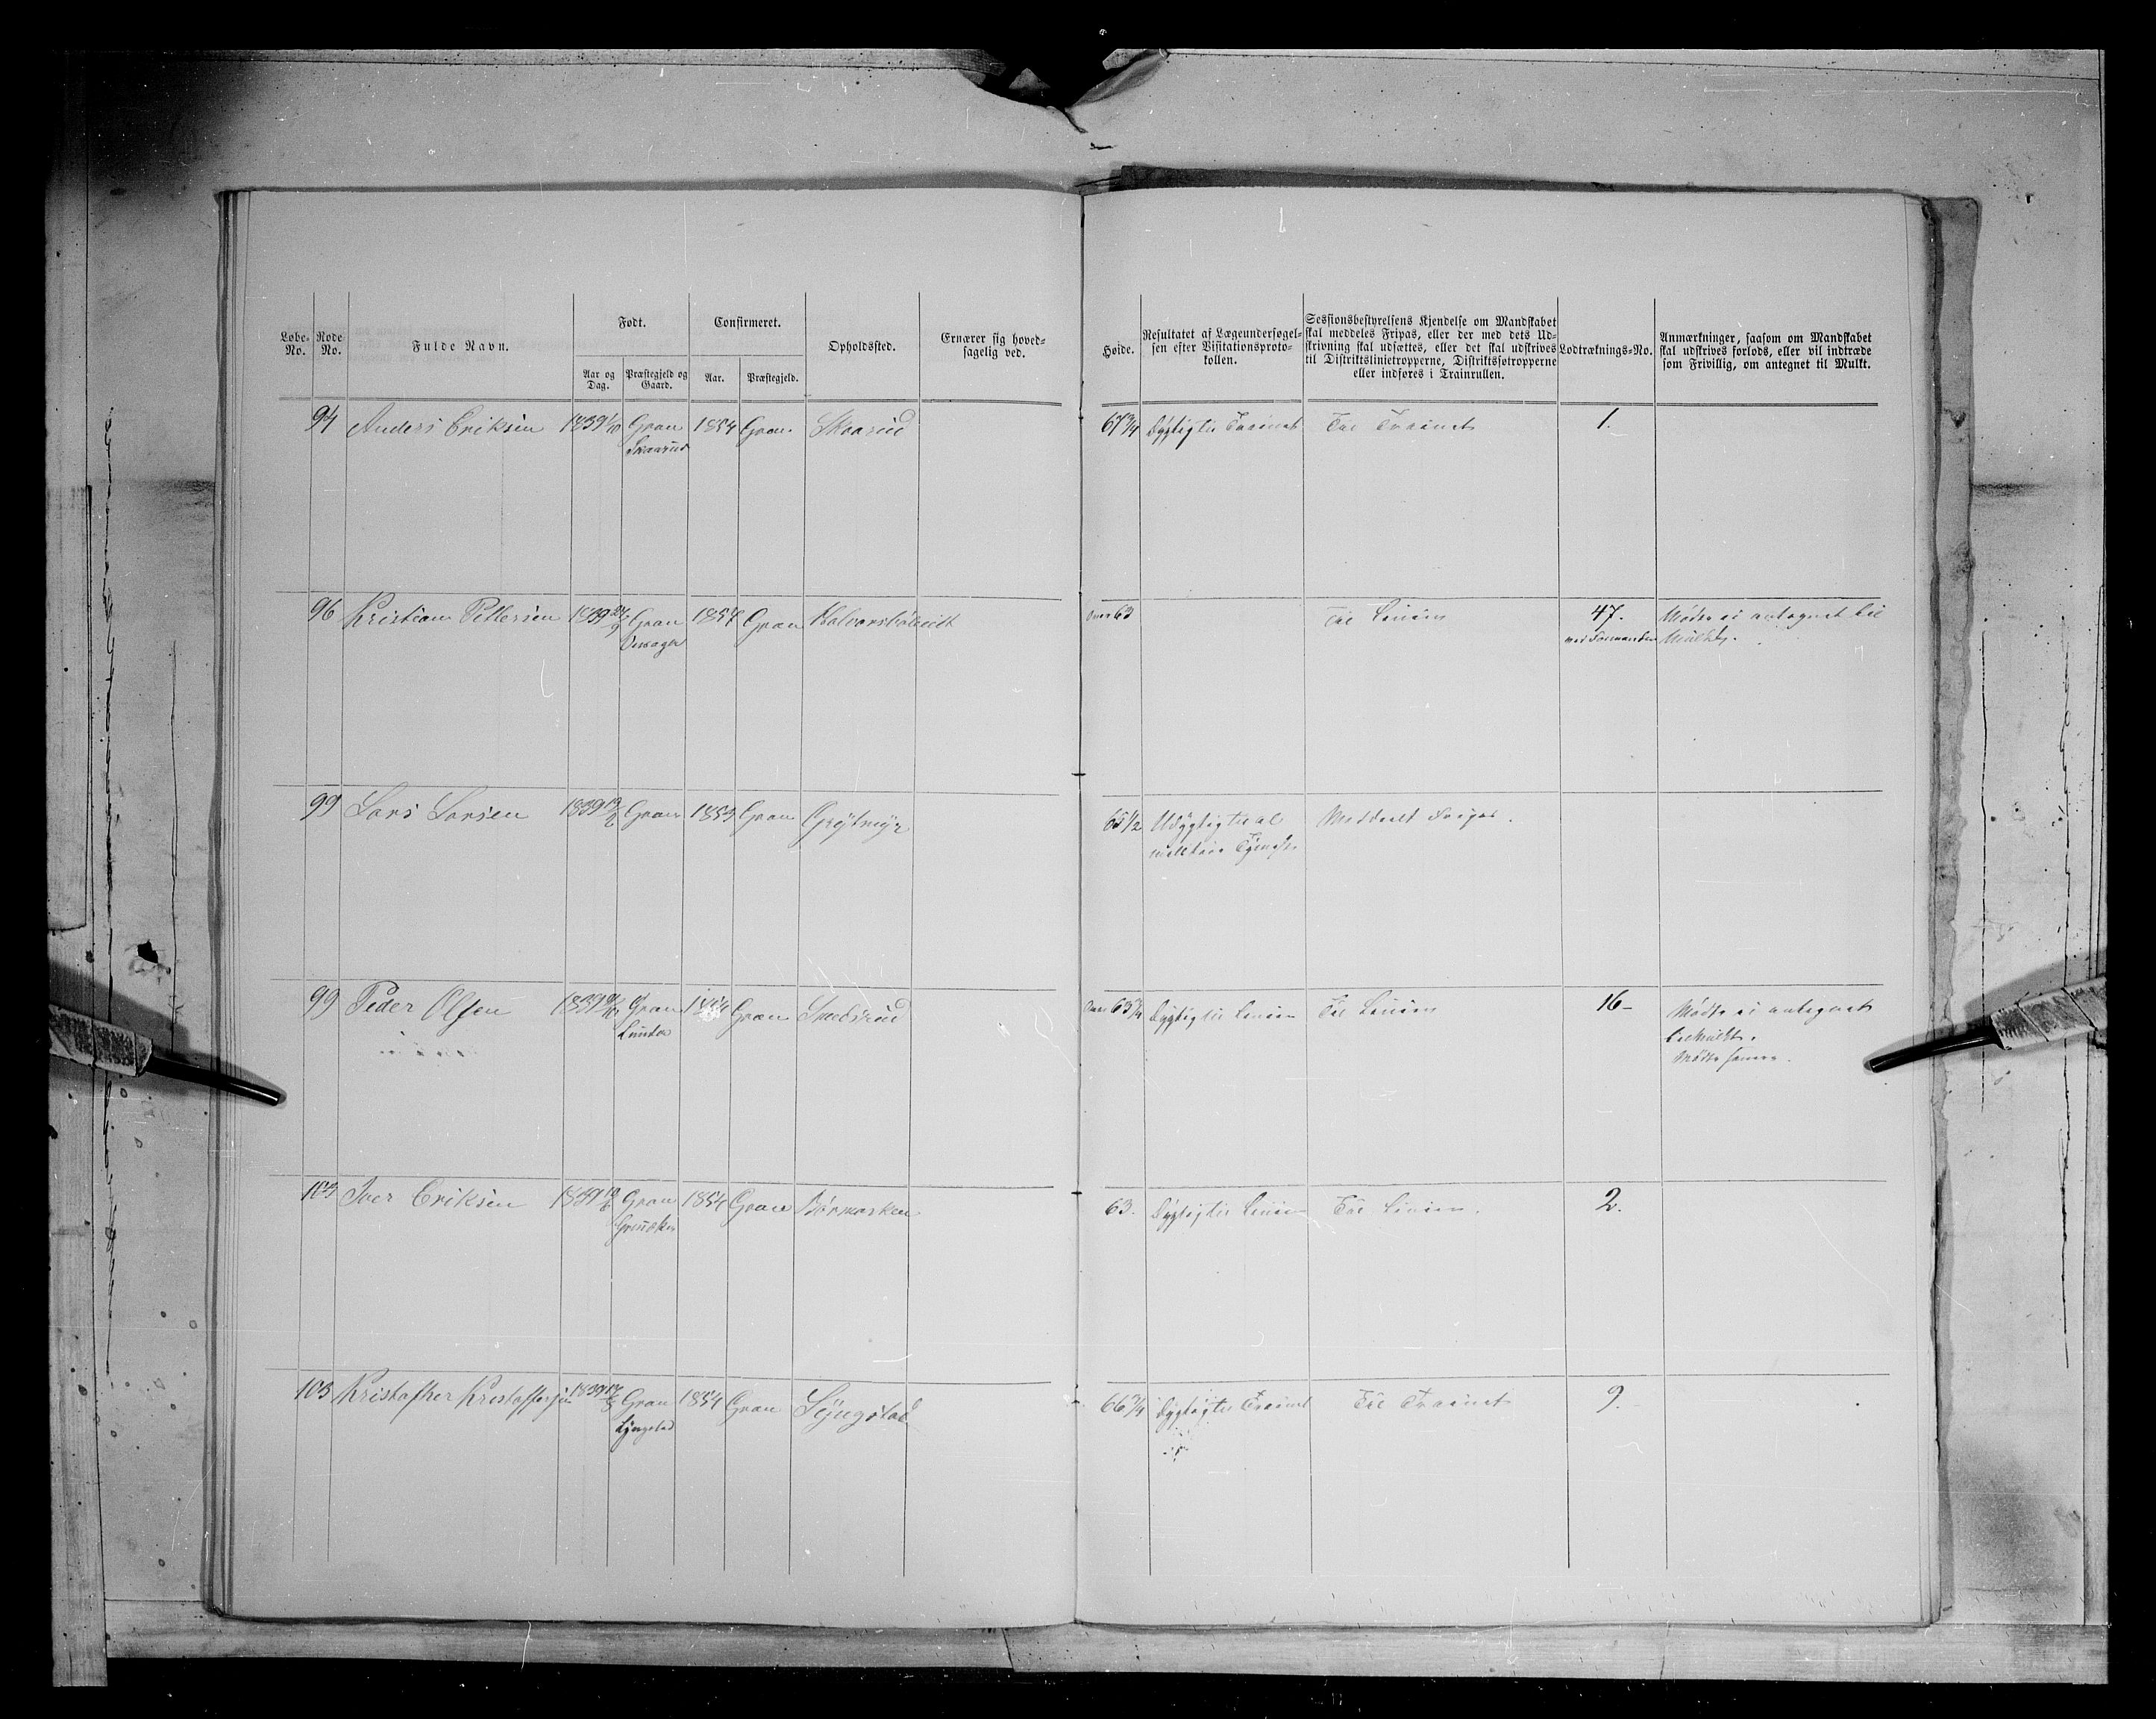 Løbe-No.
Rode No.
Fulde Navn.
Født.
Aar og Dag.
Præstegjeld og Gaard.
Confirmeret.
Aar.
Præstegjeld.
Opholdssted.
Ernærer sig hovedsagelig ved.
Høide.
Resultatet af Lægeundersøgelsen efter Visitationsprotokollen.
Sessionsbestyrelsens Kjendelse om Mandskabet skal meddeles Fripas, eller der med dets Udskrivning skal udsættes, eller det skal udskrives til Distriktslinietropperne, Distriktsføtropperne eller indføres i Trainrullen.
Lodtræknings-No.
Anmærkninger, saasom om Mandskabet skal udskrives forlods, eller vil indtræde som Frivillig, om antegnet til Mulkt.
94 Anders Eriksen 1839 1/10 Gran 1854 Gran. Skaarud 67 3/4 Dygtig til Trainet Til Trainet 1.
Skaarud
96 Kristian Pettersen 1839 Gran Gran Over 63 Til Linien 47. Mødte ei antegnet til
ved Formanden Mulkt.
99 Lars Larsen 1839 Gran 1853 Gran Grytmyr 65 1/2 Udygtig til al Meddeelt Fripas.
militair Tjeneste
99 Peder Olsen 1839 Gran Gran Over 63 Dygtig til Linien Til Linien 16 Mødte ei antegnet
Lunder til Mulkt.
Mødte senere.
103 Iver Eriksen 1839 Gran 1854 Gran Børmarken 63. Dygtig til Linien Til Linien. 2.
103 Kristofher Kristoffersen 1839 Gran 1854 Gran Lyngstad 66 3/4 Dygtig til Trainet Til Trainet 9.
Lyngstad